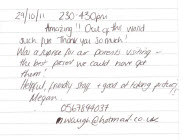 29/10/11 2:30-4:30pm
Amazing!! Out of this world
such fun. Thank you so much!
Was a surprise for our parents visiting -
the best present we could have got
them!
Helpful, friendly staff & good at taking pictures!
Megan
0567894037
mwaugh@hotmail.co.uk